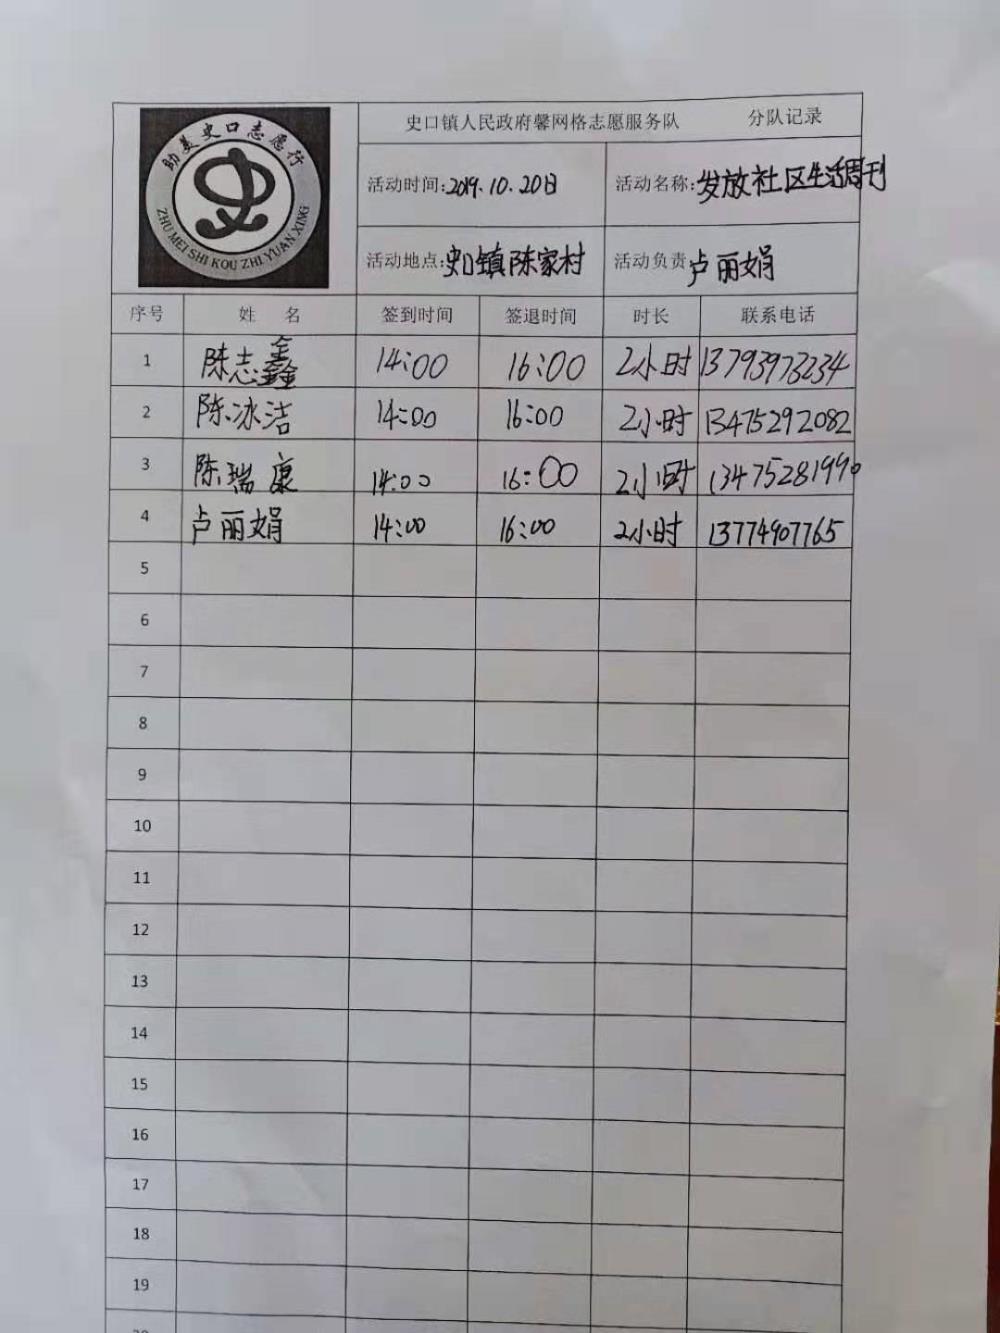 助美史口志愿行
ZHU MEI SHI KOU ZHI YUAN XING
史口镇人民政府馨网格志愿服务队 分队记录
活动时间:2019.10.20日 活动名称:发放社区生活周刊
活动地点:史口镇陈家村 活动负责 卢丽娟
序号 姓 名 签到时间 签退时间 时长 联系电话
1 陈志鑫 14:00 16:00 2小时 13793973234
2 陈冰洁 14:00 16:00 2小时 13475292082
3 陈瑞康 14:00 16:00 2小时 13475281990
4 卢丽娟 14:00 16:00 2小时 13774907765
5
6
7
8
9
10
11
12
13
14
15
16
17
18
19